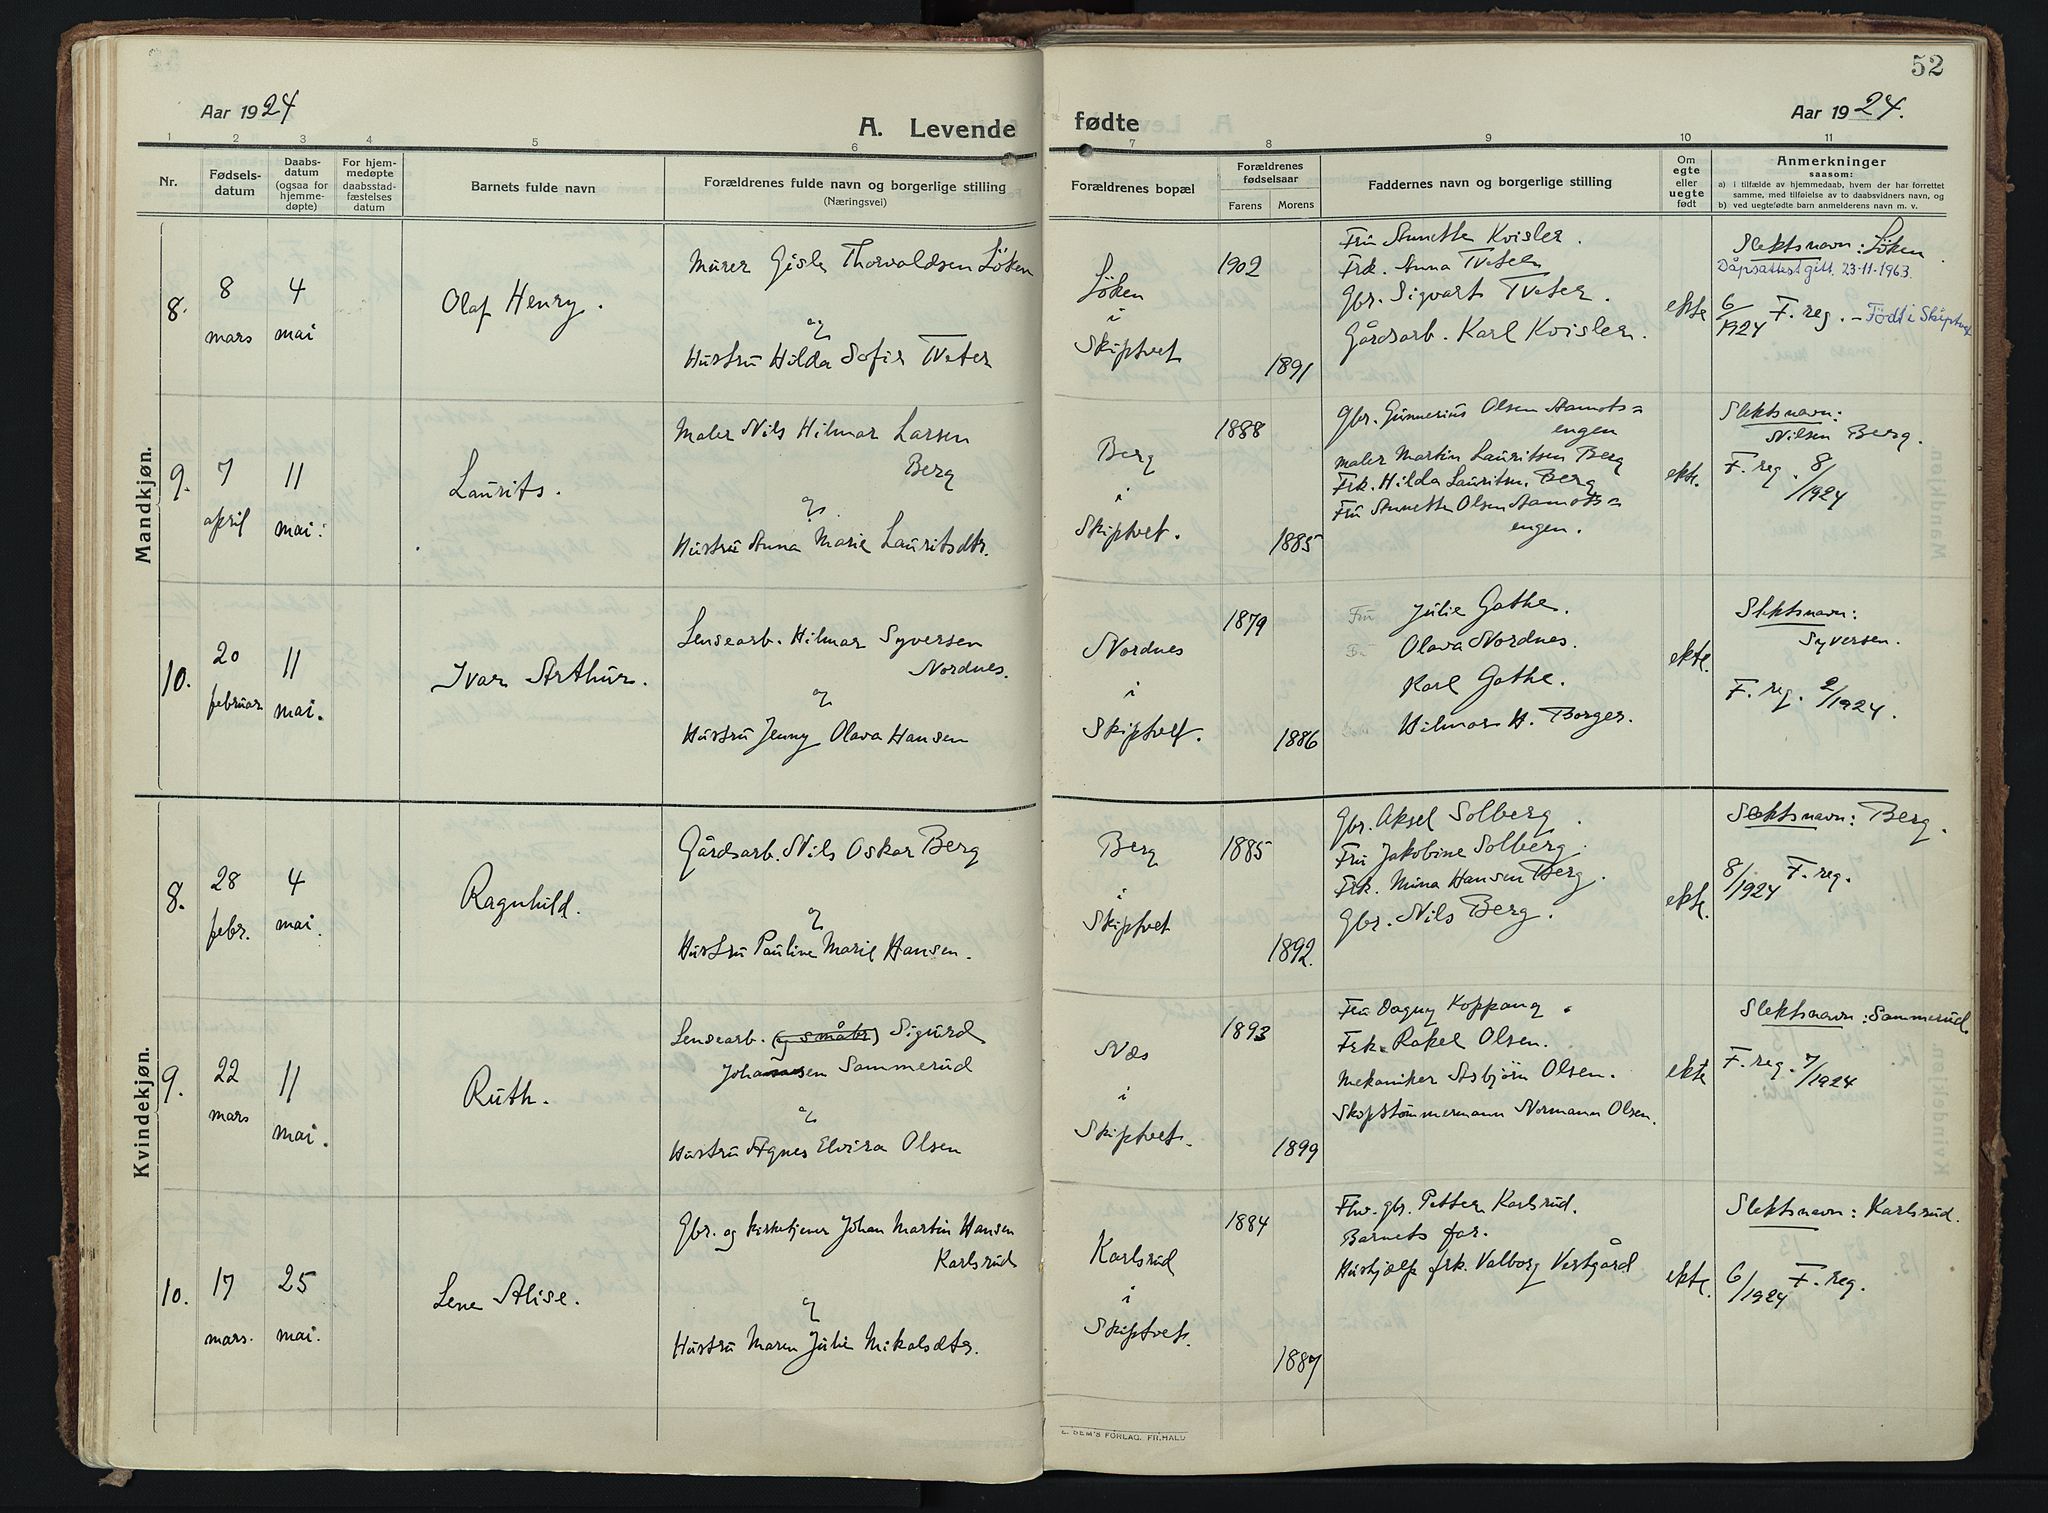 52
Aar 1924
Aar 1924.
A. Levende fødte
1 2 3 4 5 6 7 8 9 10 11
Nr.
Fødsels-
datum
Daabs-
datum
(ogsaa for
hjemme-
døpte)
For hjem-
medøpte
daabsstad-
fæstelses
datum
Barnets fulde navn
Forældrenes fulde navn og borgerlige stilling
(Næringsvei)
Forældrenes bopæl
Forældrenes
fødselsaar
Farens Morens
Faddernes navn og borgerlige stilling
Om
egte
eller
uegte
født
Anmerkninger
saasom:
a) i tilfælde av hjemmedaab, hvem der har forrettet
samme, med tilføielse av to daabsvidners navn, og
b) ved uegtefødte barn anmelderens navn m. v.
Mandkjøn.
8.
8
mars
4
mai
Olaf Henry.
Murer Gisle Thorvaldsen Löken
og
Hustru Hilda Sofie Tveter
Löken
i
Skiptvet
1902
1891
Fru Annette Kvisler.
Frk. Anna Tveter
Gbr. Sigvart Tveter.
Gårdsarb. Karl Kvisler.
ekte
Slektsnavn: Löken
Dåpsattest gitt. 23-11-1963.
6/1924 F. reg. – Födt i Skiptvet
9.
7
april
11
mai.
Laurits.
Maler Nils Hilmar Larsen
Berg
og
Hustru Anna Marie Lauritsdtr.
Berg
i
Skiptvet.
1888
1885
Gbr. Gunnerius Olsen Aamots=
engen
maler Martin Lauritsen Berg
Frk. Hilda Lauritsn. Berg
Fru Annette Olsen Aamots=
engen.
ekte.
Slektsnavn:
Nilsen Berg.
F. reg. 8/1924
10.
20
februar
11
mai.
Ivar Arthur.
Lensearb. Hilmar Syversen
Nordnes.
og
Hustru Jenny Olava Hansen
Nordnes
i
Skiptvet.
1879
1886
Fru Julie Gathe.
Fru Olava Nordnes.
Karl Gathe.
Hilmar H. Borger.
ekte.
Slektsnavn:
Syversen.
F. reg. 2/1924.
Kvindekjøn.
8.
28
febr.
4
mai.
Ragnhild.
Gårdsarb. Nils Oskar Berg
og
Hustru Pauline Marie Hansen.
Berg
i
Skiptvet
1885
1892.
Gbr. Aksel Solberg.
Fru Jakobine Solberg.
Frk. Mina Hansen Berg.
Gbr. Nils Berg.
ekte.
Slektsnavn: Berg.
8/1924 F. reg.
9.
22
mars
11
mai.
Ruth.
Lensearb. (og småbr) Sigurd
Johannesen Sammerud
og
Hustru Agnes Elvira Olsen
Næs
i
Skiptvet.
1893
1899
Fru Dagny Koppang.
Frk. Rakel Olsen.
Mekaniker Asbjörn Olsen.
Skipstömmermann Normann Olsen.
ekte
Slektsnavn: Sammerud.
F. reg. 7/1924
10.
17
mars.
25
mai.
Lene Alise.
Gbr. og kirketjener Johan Martin Hansen
Karlsrud
og
Hustru Maren Julie Mikalsdtr.
Karlsrud
i
Skiptvet.
1884
1887
Fhv. gbr. Petter Karlsrud.
Barnets far.
Hushjælp frk. Valborg Vestgård
ekte.
Slektsnavn: Karlsrud.
6/1924 F. reg.
E. SEM'S FORLAG, FR.HALD